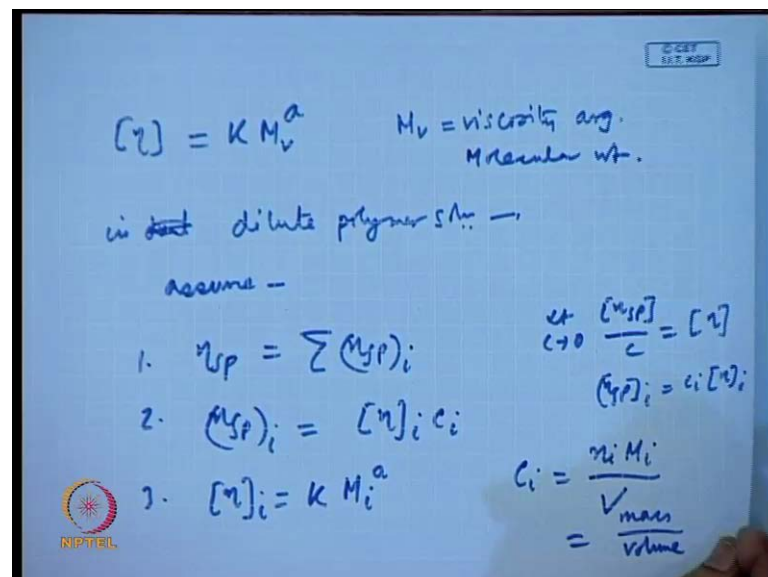 © CET
I.I.T. KGP
[η] = K M_v^a
M_v = viscosity avg.
Molecular wt.
in dilute polymer soln —
assume —
1. η_sp = Σ (η_sp)_i
2. (η_sp)_i = [η]_i c_i
3. [η]_i = K M_i^a
lt c→0 [η_sp]/c = [η]
(η_sp)_i = c_i [η]_i
c_i = n_i M_i / V
= mass / volume
NPTEL